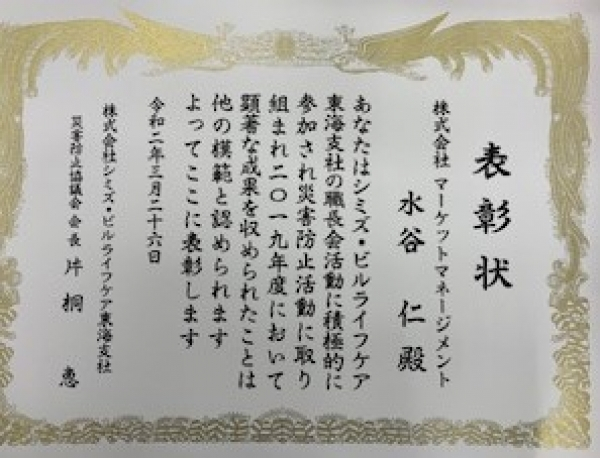 表彰状
株式会社 マーケットマネージメント
水谷 仁 殿
あなたはシミズ・ビルライフケア
東海支社の職長会活動に積極的に
参加され災害防止活動に取り
組まれ二〇一九年度において
顕著な成果を収められたことは
他の模範と認められます
よってここに表彰します
令和二年三月二十六日
株式会社シミズ・ビルライフケア東海支社
災害防止協議会 会長 片桐 恵